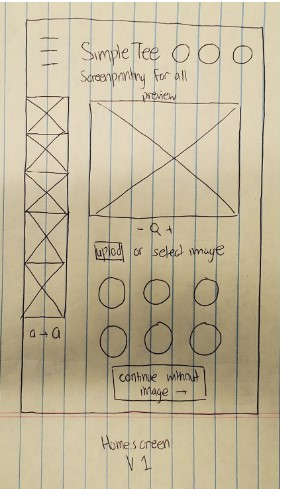 Simple Tee
Screenprinting for all
preview
- Q +
upload or select image
a → a
continue without
image →
Homescreen
V 1